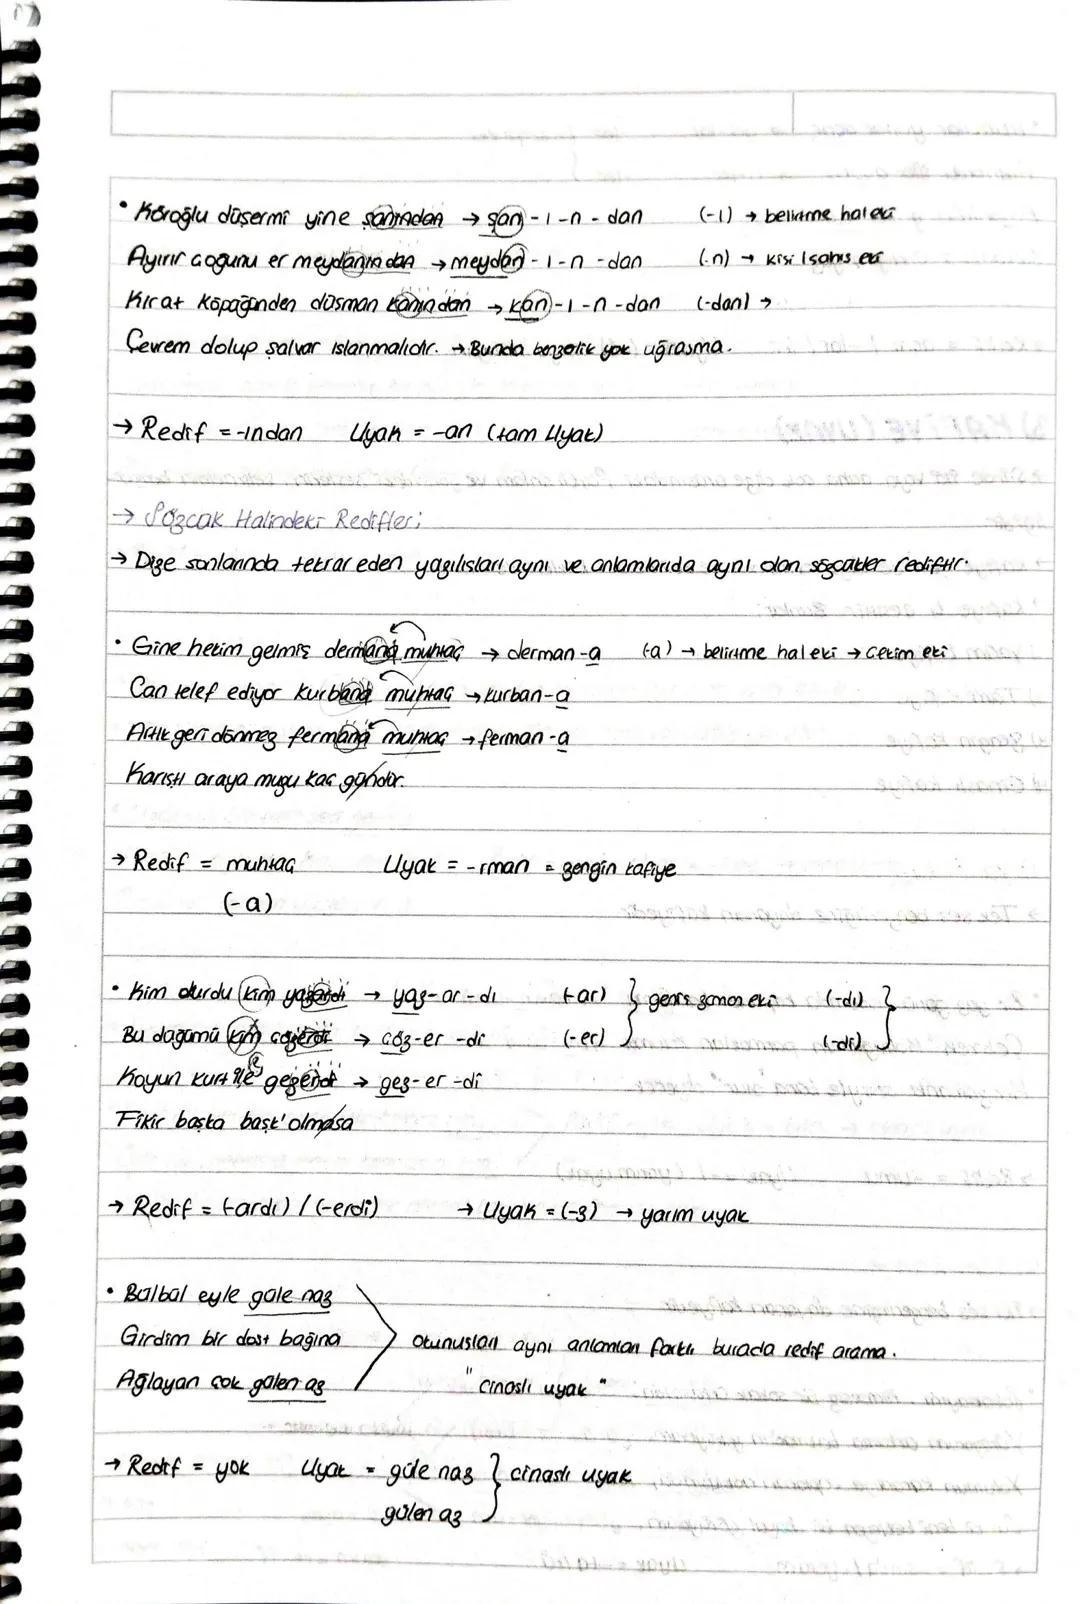 • Köroğlu düşermi yine şanından → şan -ı -n - dan (-ı) → belirtme hal eki
Ayırır çoğunu er meydanından → meydan -ı -n -dan (-n) → kişi / şahıs eki
Kırat köpüğünden düşman kanından → kan -ı -n -dan (-dan) →
Çevrem dolup şalvar ıslanmalıdır. → Bunda benzelik yok uğraşma.
→ Redif = -ından Uyak = -an (tam Uyak)
→ Sözcük Halindeki Redifler;
→ Dize sonlarında tekrar eden yazılışları aynı ve anlamlarıda aynı olan sözcükler rediftir.
• Gine hekim gelmiş dermana muhtaç → derman -a (-a) → belirtme hal eki → çekim eki
Can telef ediyor kurbana muhtaç → kurban-a
Artık geri dönmez fermana muhtaç → ferman -a
Karıştı araya muzu kaç gündür.
→ Redif = muhtaç Uyak = -rman = zengin kafiye
(-a)
• Kim okurdu kim yazardı → yaz-ar -dı (-ar) } geniş zaman eki (-dı) }
Bu düğümü kim çözerdi → çöz-er -di (-er) (-di)
Koyun kurt ile gezerdi → gez-er -di
Fikir başka başk'olmasa
→ Redif = (-ardı) / (-erdi) → Uyak = (-z) → yarım uyak
• Bülbül eyle güle naz
Girdim bir dost bağına okunuşları aynı anlamları farklı burada redif arama.
Ağlayan çok gülen az "cinaslı uyak"
→ Redif = yok Uyak = güle naz } cinaslı uyak
gülen az